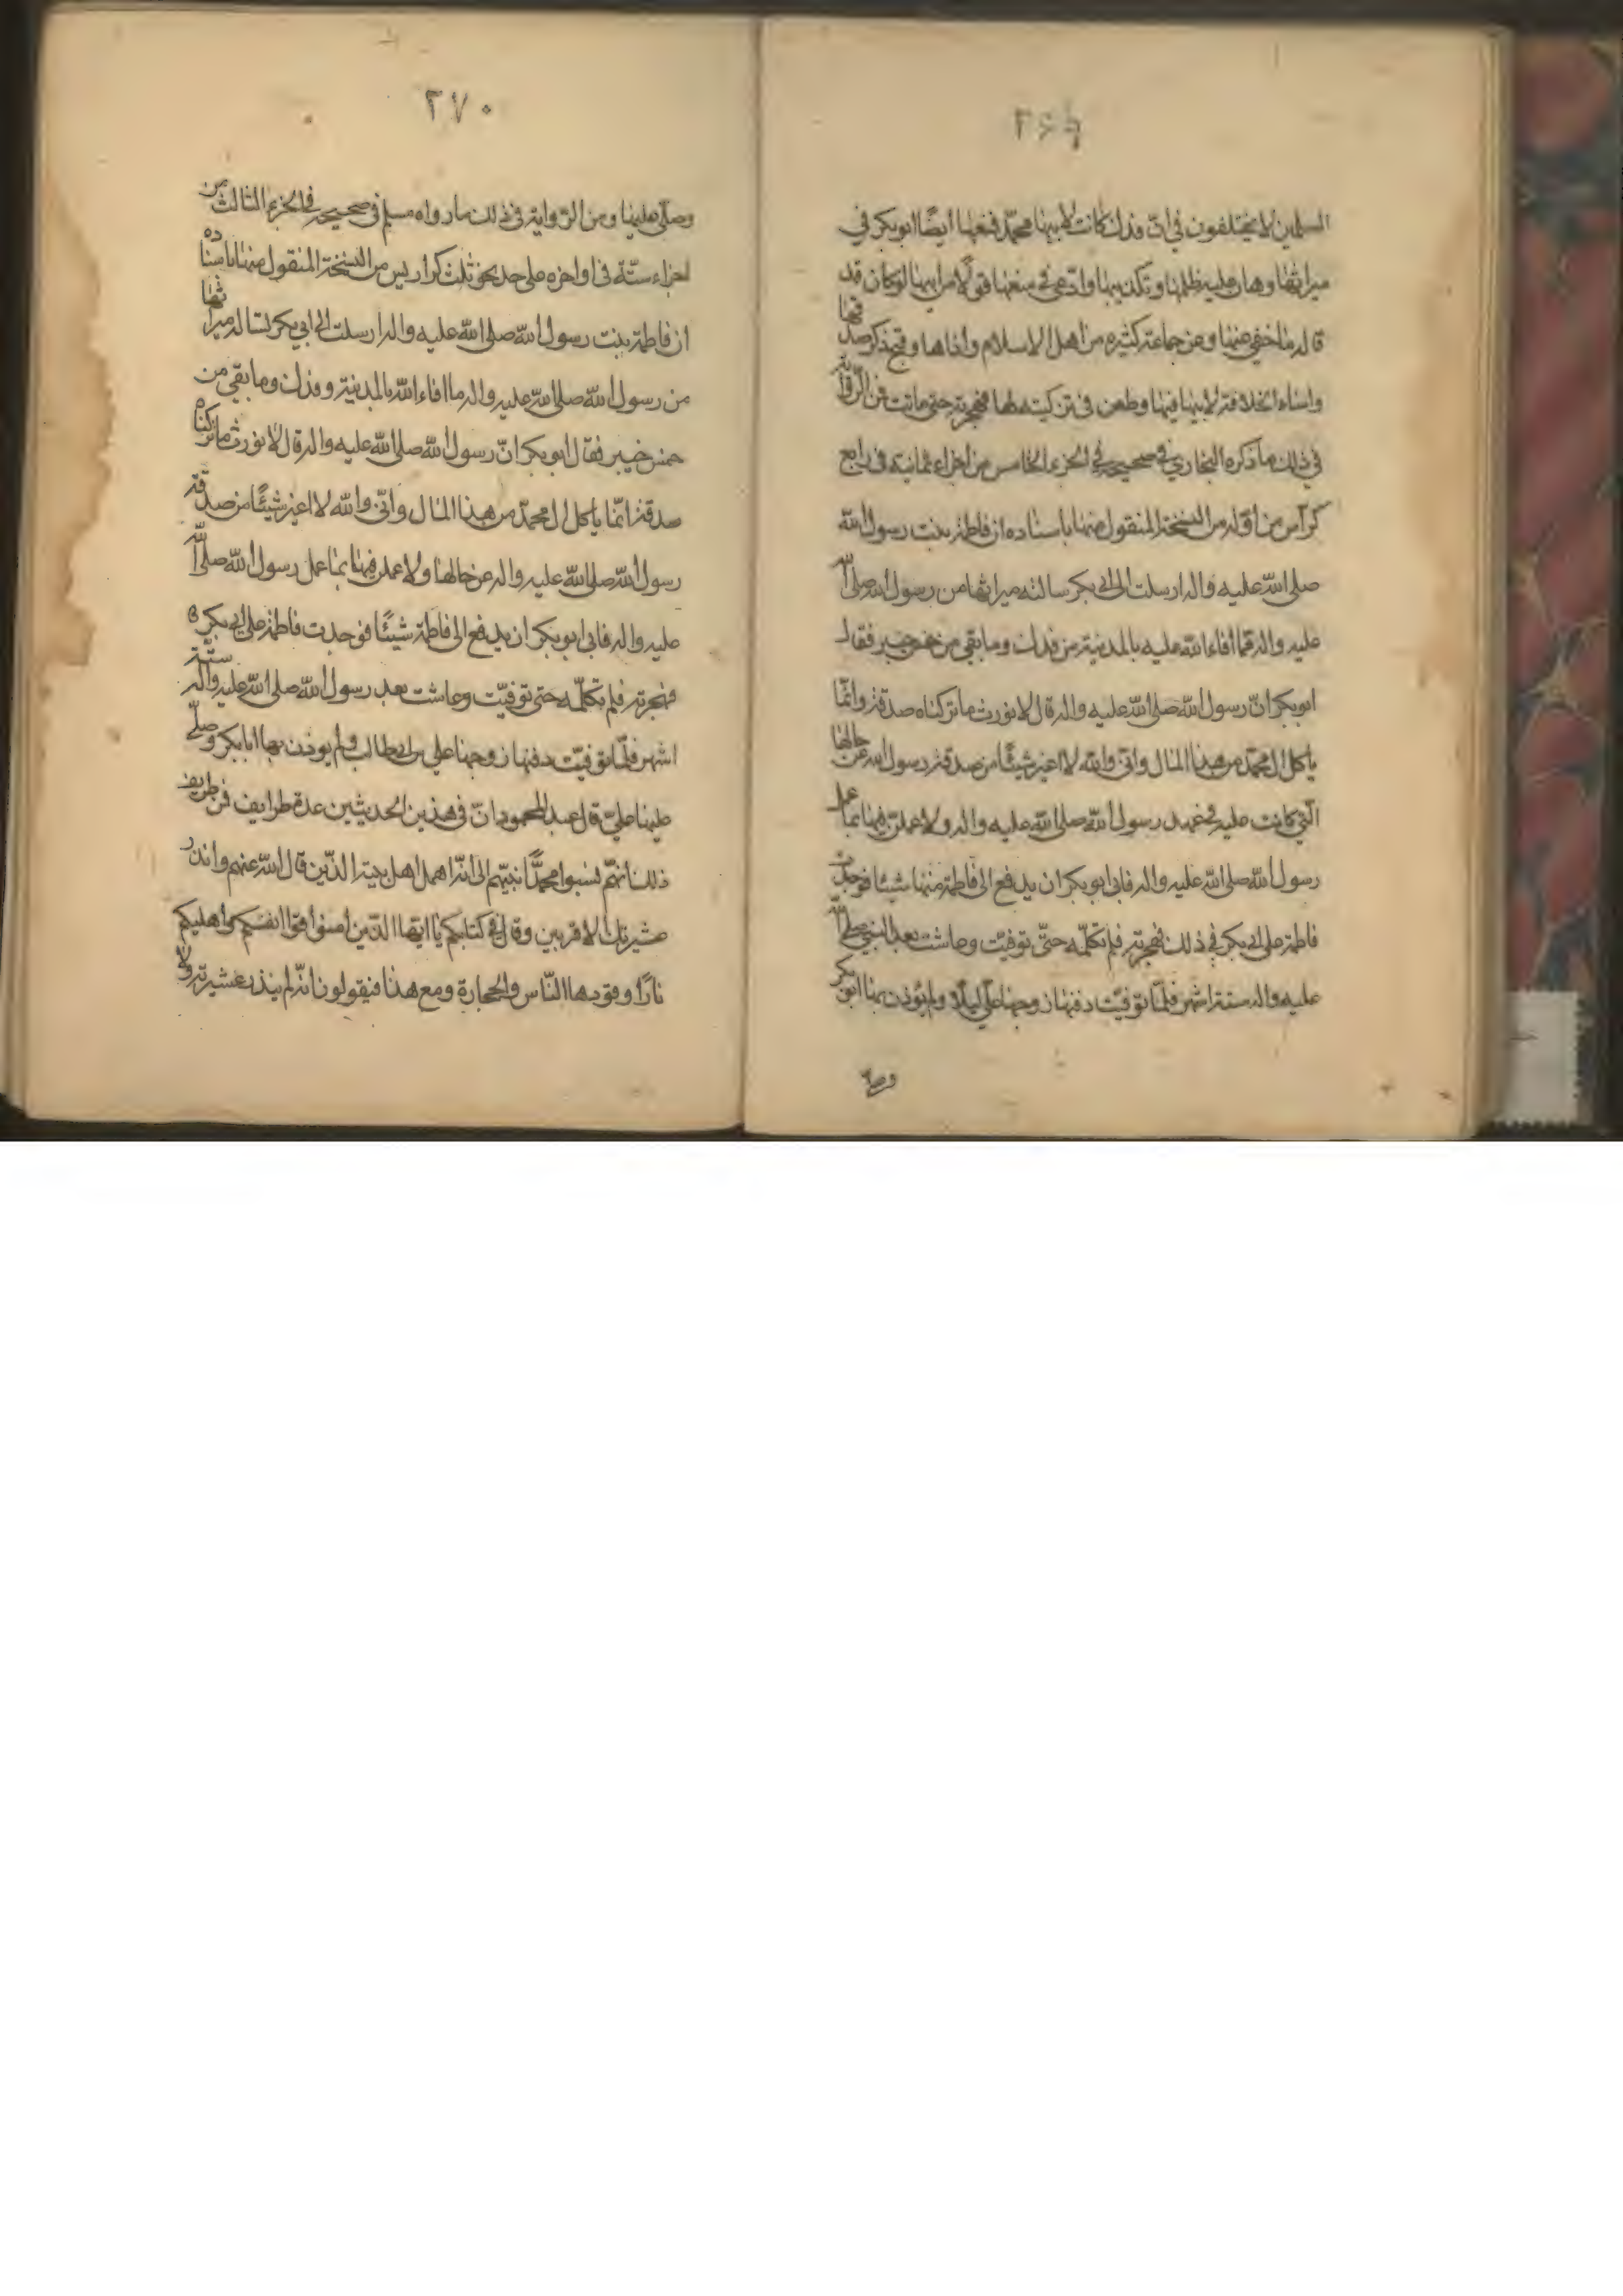 ٢٦٩
المسلمين لا يختلفون في ان فدك كانت لابيها محمّد فمنعها ايضًا ابوبكر في
ميراثها وهان عليه ظلمها وتكذيبها وادّعى في منعها قولًا من ابيها لو كان قد
قاله ما خفي عنها وعن جماعة كثيرة من اهل الاسلام واذاها وقبح ذكر صدقها
واساء الخلافة لابيها فيها وطعن في تزكيته لها فهجرته حتى ماتت فمن الرّواية
في ذلك ما ذكره البخاري في صحيحه في الجزء الخامس من اجزاء ثمانية في رابع
كراس من اوّله من النسخة المنقول منها باسناده ان فاطمة بنت رسول الله
صلى الله عليه واله ارسلت الى ابي بكر سالته ميراثها من رسول الله صلى الله
عليه واله ممّا افاء الله عليه بالمدينة من فدك وما بقي من خمس خيبر فقال
ابوبكر انّ رسول الله صلى الله عليه واله قال لا نورث ما تركناه صدقة وانّما
ياكل ال محمّد من هذا المال وانّي والله لا اغيّر شيئًا من صدقة رسول الله عن حالها
الّتي كانت عليه في عهد رسول الله صلى الله عليه واله ولا عملنّ فيها بما عمل
رسول الله صلى الله عليه واله فابى ابوبكر ان يدفع الى فاطمة منها شيئًا فوجدت
فاطمة على ابي بكر في ذلك فهجرته فلم تكلّمه حتّى توفيّت وعاشت بعد النبي صلى الله
عليه واله ستة اشهر فلمّا توفيّت دفنها زوجها علي ليلًا ولم يؤذن بها ابوبكر
وصلّى
٢٧٠
وصلّى عليها ومن الرّواية في ذلك ما رواه مسلم في صحيحه في الجزء الثالث من
اجزاء ستّة في اواخره على حد نحو ثلث كراريس من النسخة المنقول منها باسناده
ان فاطمة بنت رسول الله صلى الله عليه واله ارسلت الى ابي بكر تساله ميراثها
من رسول الله صلى الله عليه واله ما افاء الله بالمدينة وفدك وما بقي من
خمس خيبر فقال ابوبكر انّ رسول الله صلى الله عليه واله قال لا نورث ما تركناه
صدقة انّما ياكل ال محمّد من هذا المال وانّي والله لا اغيّر شيئًا من صدقة
رسول الله صلى الله عليه واله عن حالها ولا عملن فيها بما عمل رسول الله صلى الله
عليه واله فابى ابوبكر ان يدفع الى فاطمة شيئًا فوجدت فاطمة على ابي بكر
فهجرته فلم تكلّمه حتى توفيّت وعاشت بعد رسول الله صلى الله عليه واله ستّة
اشهر فلمّا توفيّت دفنها زوجها علي بن ابي طالب ولم يوذن بها ابابكر وصلّى
عليها عليّ قال عبد المحمود انّ في هذين الحديثين عدة طرايف فمن طريف
ذلك انهم نسبوا محمدًا نبيّهم الى انّه اهمل اهل بيته الّذين قال الله عنهم وانذر
عشيرتك الاقربين وقال في كتابكم يا ايّها الّذين امنوا قوا انفسكم واهليكم
نارًا وقودها النّاس والحجارة ومع هذا فيقولون انّه لم ينذر عشيرته ولا